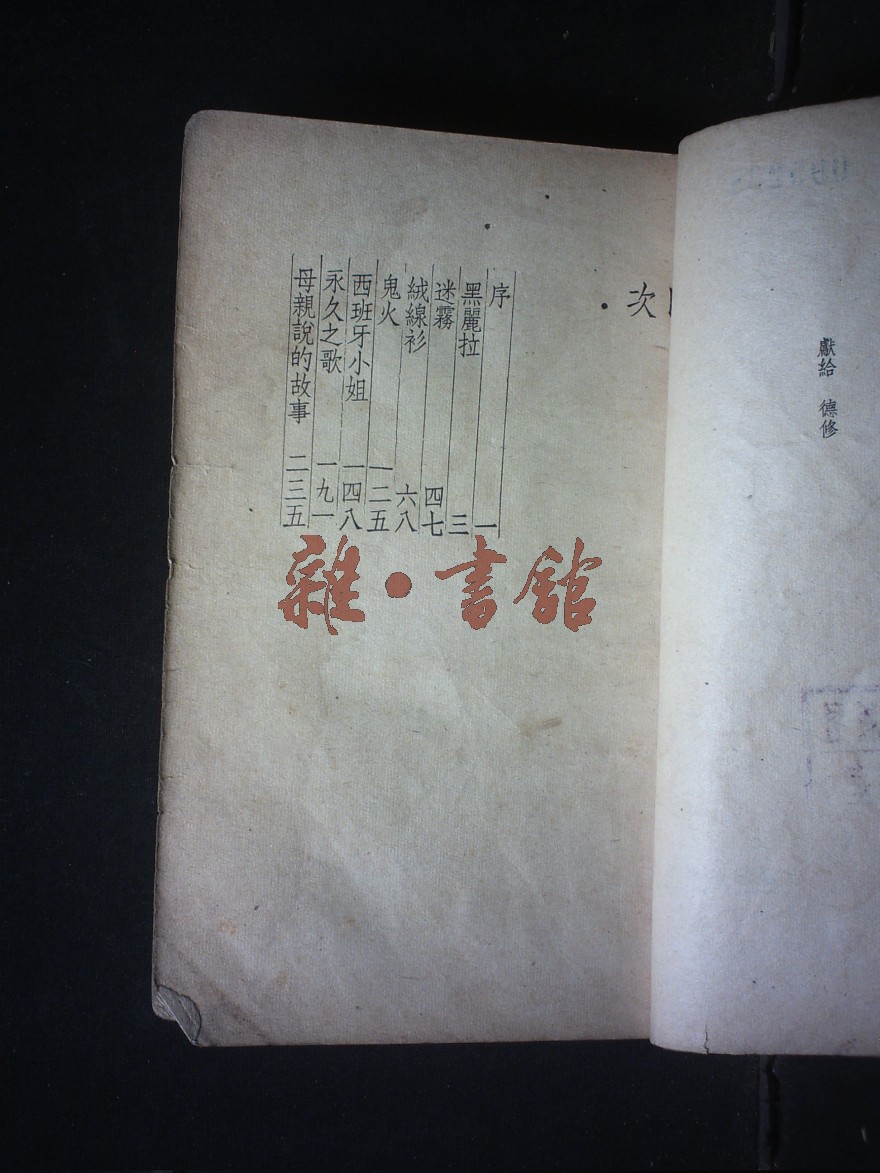 獻給 德修
次
序 一
黑麗拉 三
迷霧 四七
絨線衫 六八
鬼火 一二五
西班牙小姐 一四八
永久之歌 一九一
母親說的故事 二三五
雜·書館